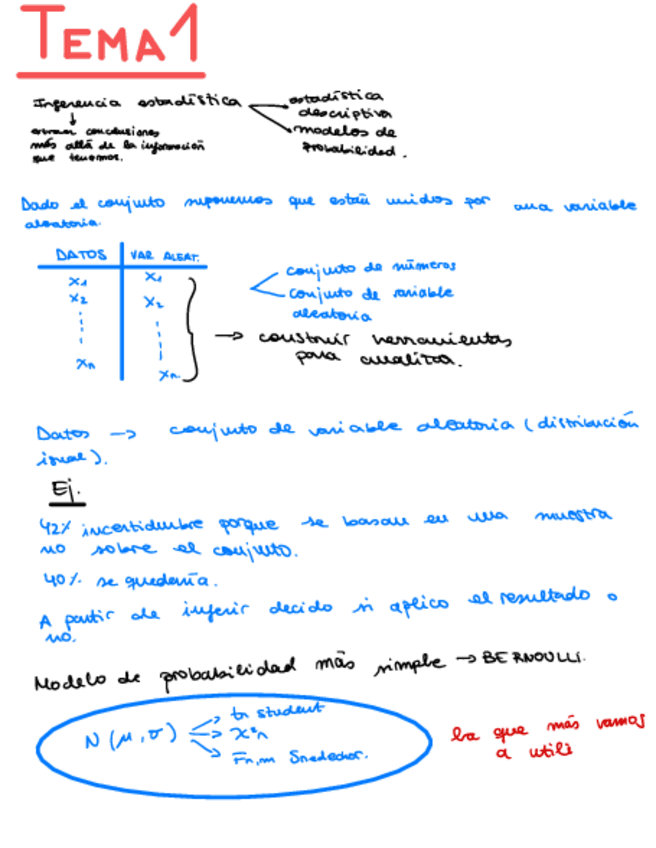 TEMA 1
Inferencia estadística
estadística
descriptiva
modelos de
probabilidad.
extraer conclusiones
más allá de la información
que tenemos.
Dado el conjunto suponemos que están unidos por una variable
aleatoria.
DATOS | VAR ALEAT.
x1 x1
x2 x2
xn xn
conjunto de números
conjunto de variable
aleatoria
→ construir herramientas
para analizar.
Datos → conjunto de variable aleatoria (distribución
igual).
Ej.
42% incertidumbre porque se basan en una muestra
no sobre el conjunto.
40% se quedaría.
A partir de inferir decido si aplico el resultado o
no.
Modelo de probabilidad más simple → BERNOULLI.
N (μ, σ)
→ tn student
→ X²n
→ Fn,m Snedechor.
La que más vamos
a utili